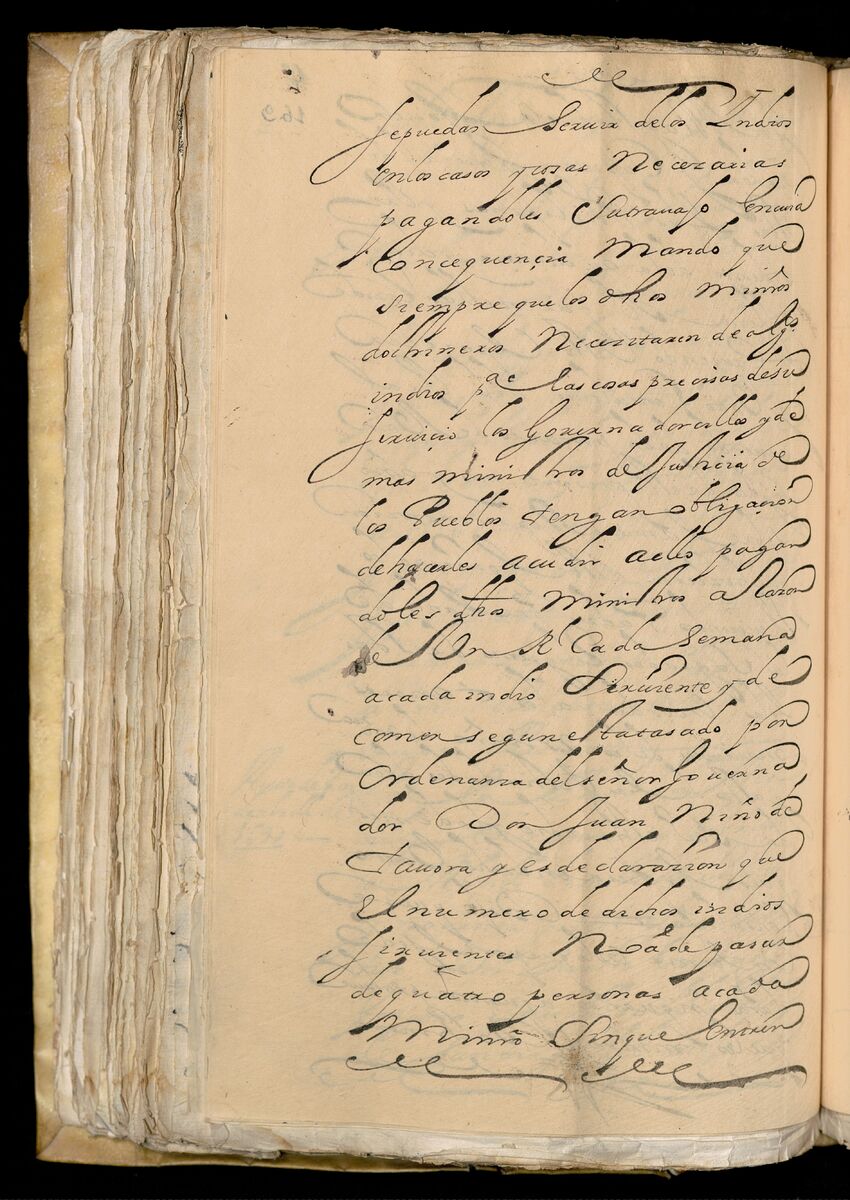 sepuedan Seruir delos Yndios
enlos casos ycosas Necezarias
pagandoles Sutravajo En cuia
concequençia Mando que
siempre quelos dhos Minros
doctrineros Necezitaren de algs
indios pa las cosas precisas desu
seruicio los Gouernadorcillos y de
mas ministros de Justicia de
los Pueblos tengan obligaçion
dehacerles acudir aello pagan
doles dhos Ministros a Razon
de Un Rl Cada Semana
acada indio Seruiente y de
comer segun esta tasado por
ordenanza del señor Gouerna
dor Don Juan Niño de
Tauora y es declarazion que
El numero de dichos indios
siruientes No a de pasar
de quatro personas acada
Minro Sin que Entren